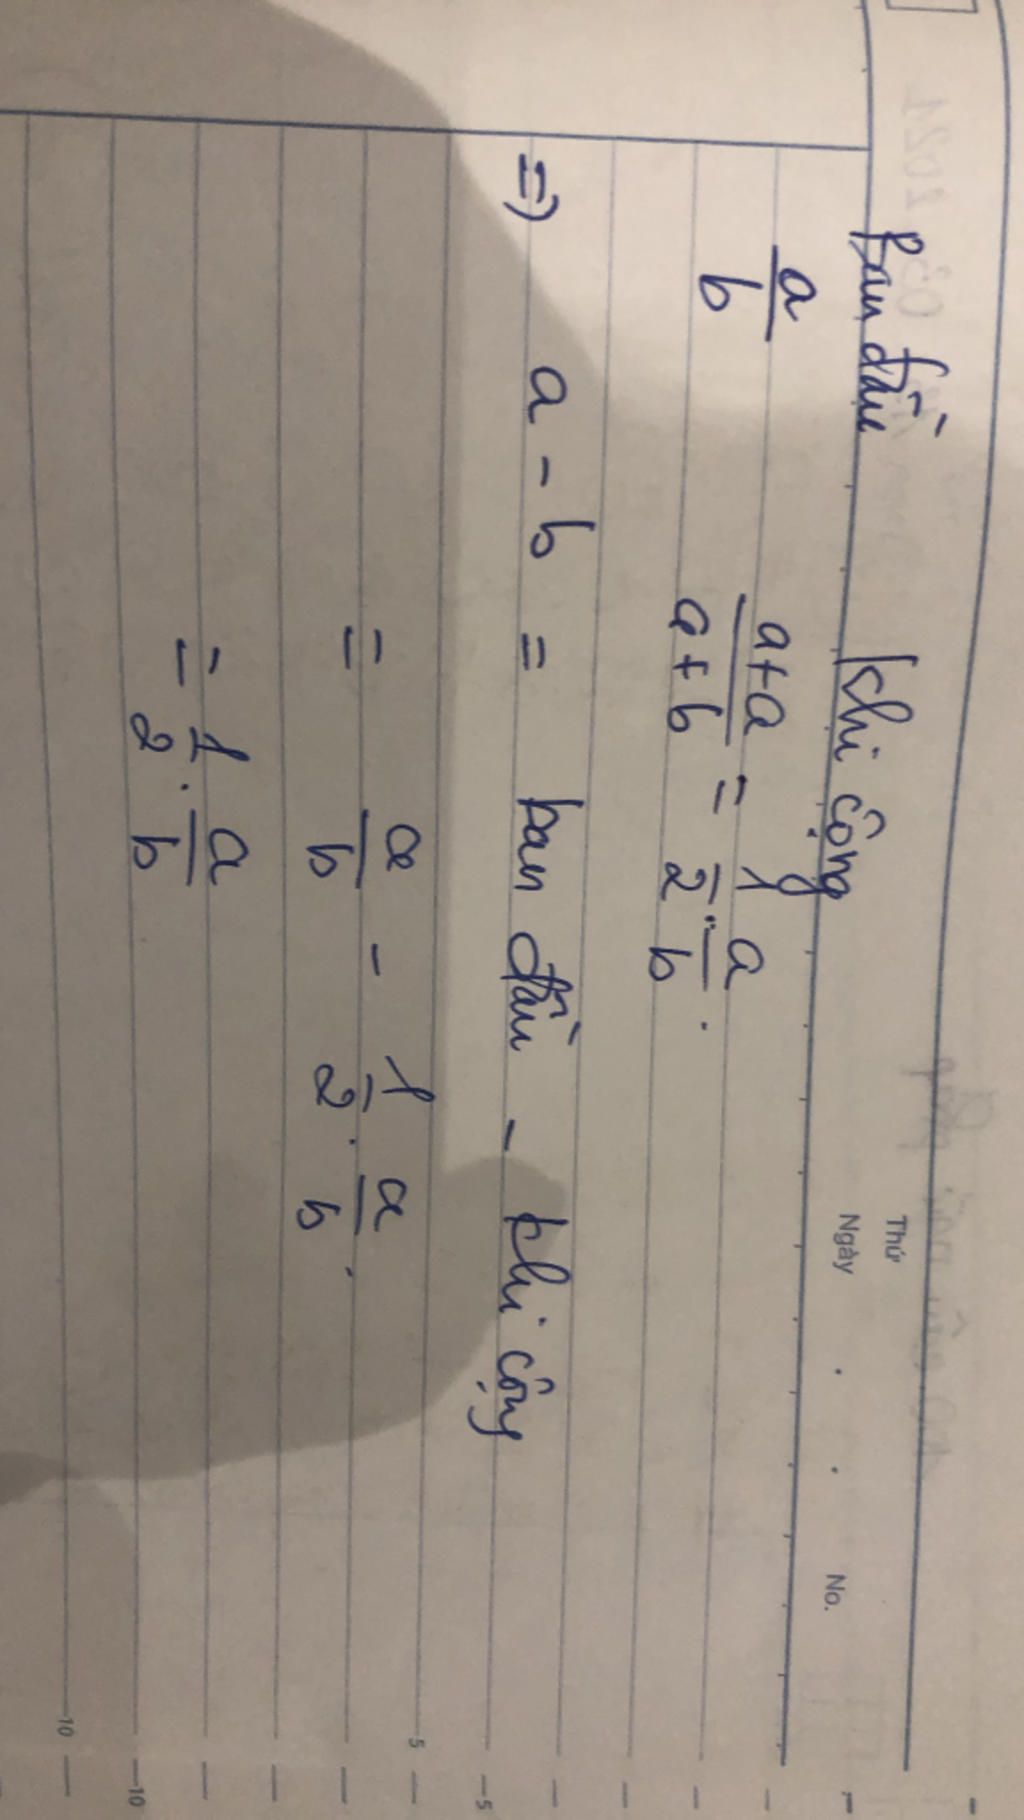 Thứ
Ngày . . No.
Ban đầu khi cộng
a/b (a+a)/(a+b) = 1/2 . a/b .
=) a - b = ban đầu - khi cộng
= a/b - 1/2 . a/b .
= 1/2 . a/b
5
5
10
10